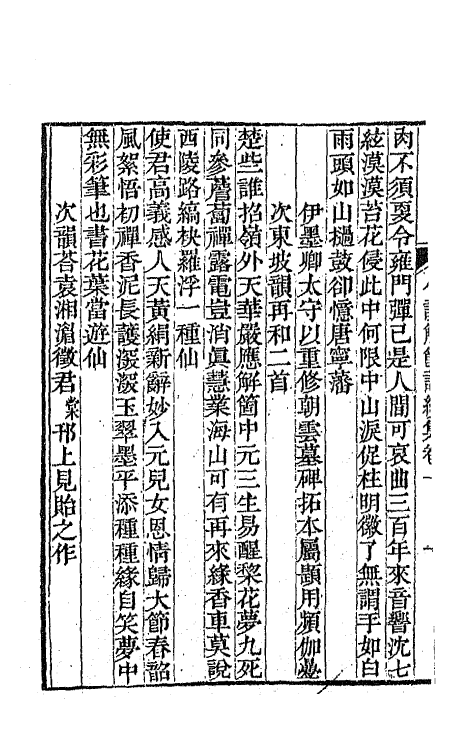 肉不須戛令雍門彈已是人間可哀曲三百年來音響沈七
絃漠漠苔花侵此中何限中山淚促柱明徽了無謂手如白
雨頭如山撾鼓卻憶唐寧藩
伊墨卿太守以重修朝雲墓碑拓本屬顥用頻伽
次東坡韻再和二首
楚些誰招嶺外天華嚴應解箇中元三生易醒黎花夢九死
同參薝蔔禪露電豈消眞慧業海山可有再來緣香車莫說
西陵路縞袂羅浮一種仙
使君高義感人天黃絹新辭妙入元兒女恩情歸大節春韶
風絮悟初禪香泥長護深深玉翠墨平添種種緣自笑夢中
無彩筆也書花葉當遊仙
次韻荅袁湘湻徵君棠邗上見貽之作